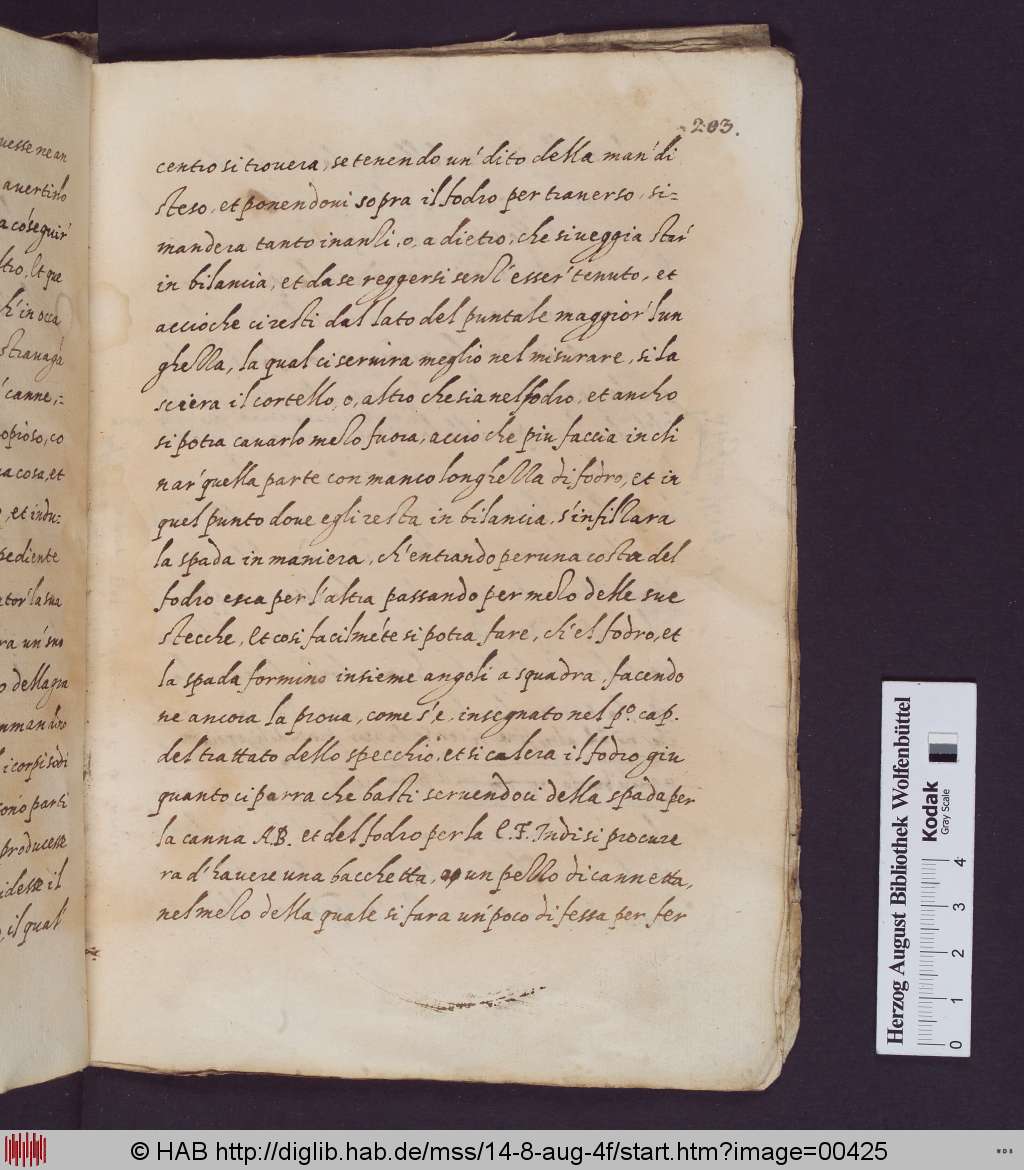 203.
centro si trovera, se tenendo un' dito della man' di
steso, et ponendovi sopra il fodro per traverso, si=
mandera tanto inanzi, o, a dietro, che si veggia star'
in bilancia, et da se reggersi senz' esser' tenuto, et
accioche ci resti dal lato del puntale maggior' lun
ghezza, la qual ci servira meglio nel misurare, si la
sciera il cortello, o, altro che sia nel fodro, et ancho
si potra cavarlo mezo fuora, accio che piu faccia incli
nar' quella parte con manco longhezza di fodro, et in
quel punto dove egli resta in bilancia, s'infilzara
la spada in maniera, ch' entrando per una costa del
fodro esca per l'altra passando per mezo delle sue
stecche, Et cosi facilmēte si potra fare, ch' el fodro, et
la spada formino insieme angoli a squadra, facendo
ne ancora la prova, come s'e, insegnato nel pº. cap.
del trattato dello specchio, et si calera il fodro giu
quanto ci parra che basti servendoci della spada per
la canna A.B. et del fodro per la E.F. Indi si procure
ra d'havere una bacchetta, un pezzo di cannetta,
nel mezo della quale si fara un' poco di fessa per fer
uesse ne an
avertirlo
a cōseguir'
tro, Et que
ch' in occa
stravagā
canne,=
copioso, co
a cosa, et
, et indu=
pediente
ator' la sua
ra un' suo
o della gra
i corpi sodi
sono parti
producesse
idesse il
, il qual
Herzog August Bibliothek Wolfenbüttel
Kodak
Gray Scale
0 1 2 3 4
© HAB http://diglib.hab.de/mss/14-8-aug-4f/start.htm?image=00425